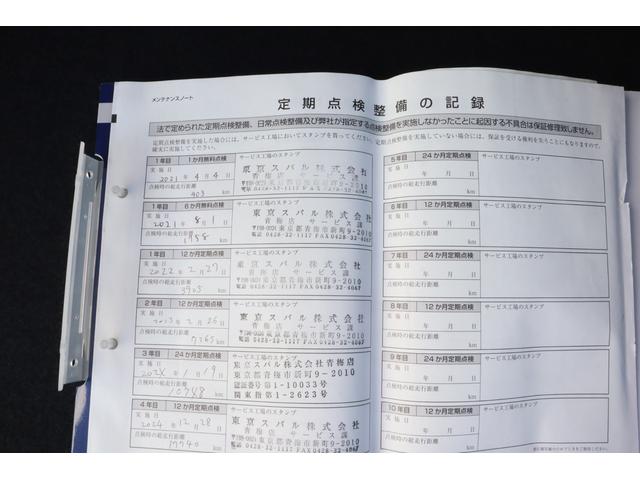 メンテナンスノート
定期点検整備の記録
法で定められた定期点検整備、日常点検整備及び弊社が指定する点検整備を実施しなかったことに起因する不具合は保証修理致しません。
定期点検整備を実施した場合には、サービス工場においてスタンプを貰ってください。
確実に実施してください。
1年目 1か月無料点検 サービス工場のスタンプ
実施日
2021年4月4日
東京スバル株式会社
青梅店 サービス課
点検時の総走行距離
403 km
1年目 6か月無料点検 サービス工場のスタンプ
実施日
2021年8月1日
東京スバル株式会社
青梅店 サービス課
〒198-0024東京都青梅市新町9-2010
電話 0428-32-1117 FAX0428-32-4047
点検時の総走行距離
1958 km
1年目 12か月定期点検 サービス工場のスタンプ
実施日
2022年2月27日
東京スバル株式会社
青梅店 サービス課
〒198-0024東京都青梅市新町9-2010
電話 0428-32-1117 FAX0428-32-4047
点検時の総走行距離
3905 km
2年目 12か月定期点検 サービス工場のスタンプ
実施日
2023年2月26日
東京スバル株式会社
青梅店 サービス課
〒198-0024東京都青梅市新町9-2010
電話 0428-32-1117 FAX0428-32-4047
点検時の総走行距離
7765 km
3年目 24か月定期点検 サービス工場のスタンプ
実施日
2024年1月19日
東京スバル株式会社青梅店
東京都青梅市新町9-2010
認証番号 1-10033号
関東指第1-2623号
点検時の総走行距離
10748 km
4年目 12か月定期点検 サービス工場のスタンプ
実施日
2024年12月28日
東京スバル株式会社
青梅店 サービス課
〒198-0024東京都青梅市新町9-2010
点検時の総走行距離
17740 km
5年目 24か月定期点検 サービス工場のスタンプ
実施日
年 月 日
点検時の総走行距離
km
6年目 12か月定期点検 サービス工場のスタンプ
実施日
年 月 日
点検時の総走行距離
km
7年目 24か月定期点検 サービス工場のスタンプ
実施日
年 月 日
点検時の総走行距離
km
8年目 12か月定期点検 サービス工場のスタンプ
実施日
年 月 日
点検時の総走行距離
km
9年目 24か月定期点検 サービス工場のスタンプ
実施日
年 月 日
点検時の総走行距離
km
10年目 12か月定期点検 サービス工場のスタンプ
実施日
年 月 日
点検時の総走行距離
km